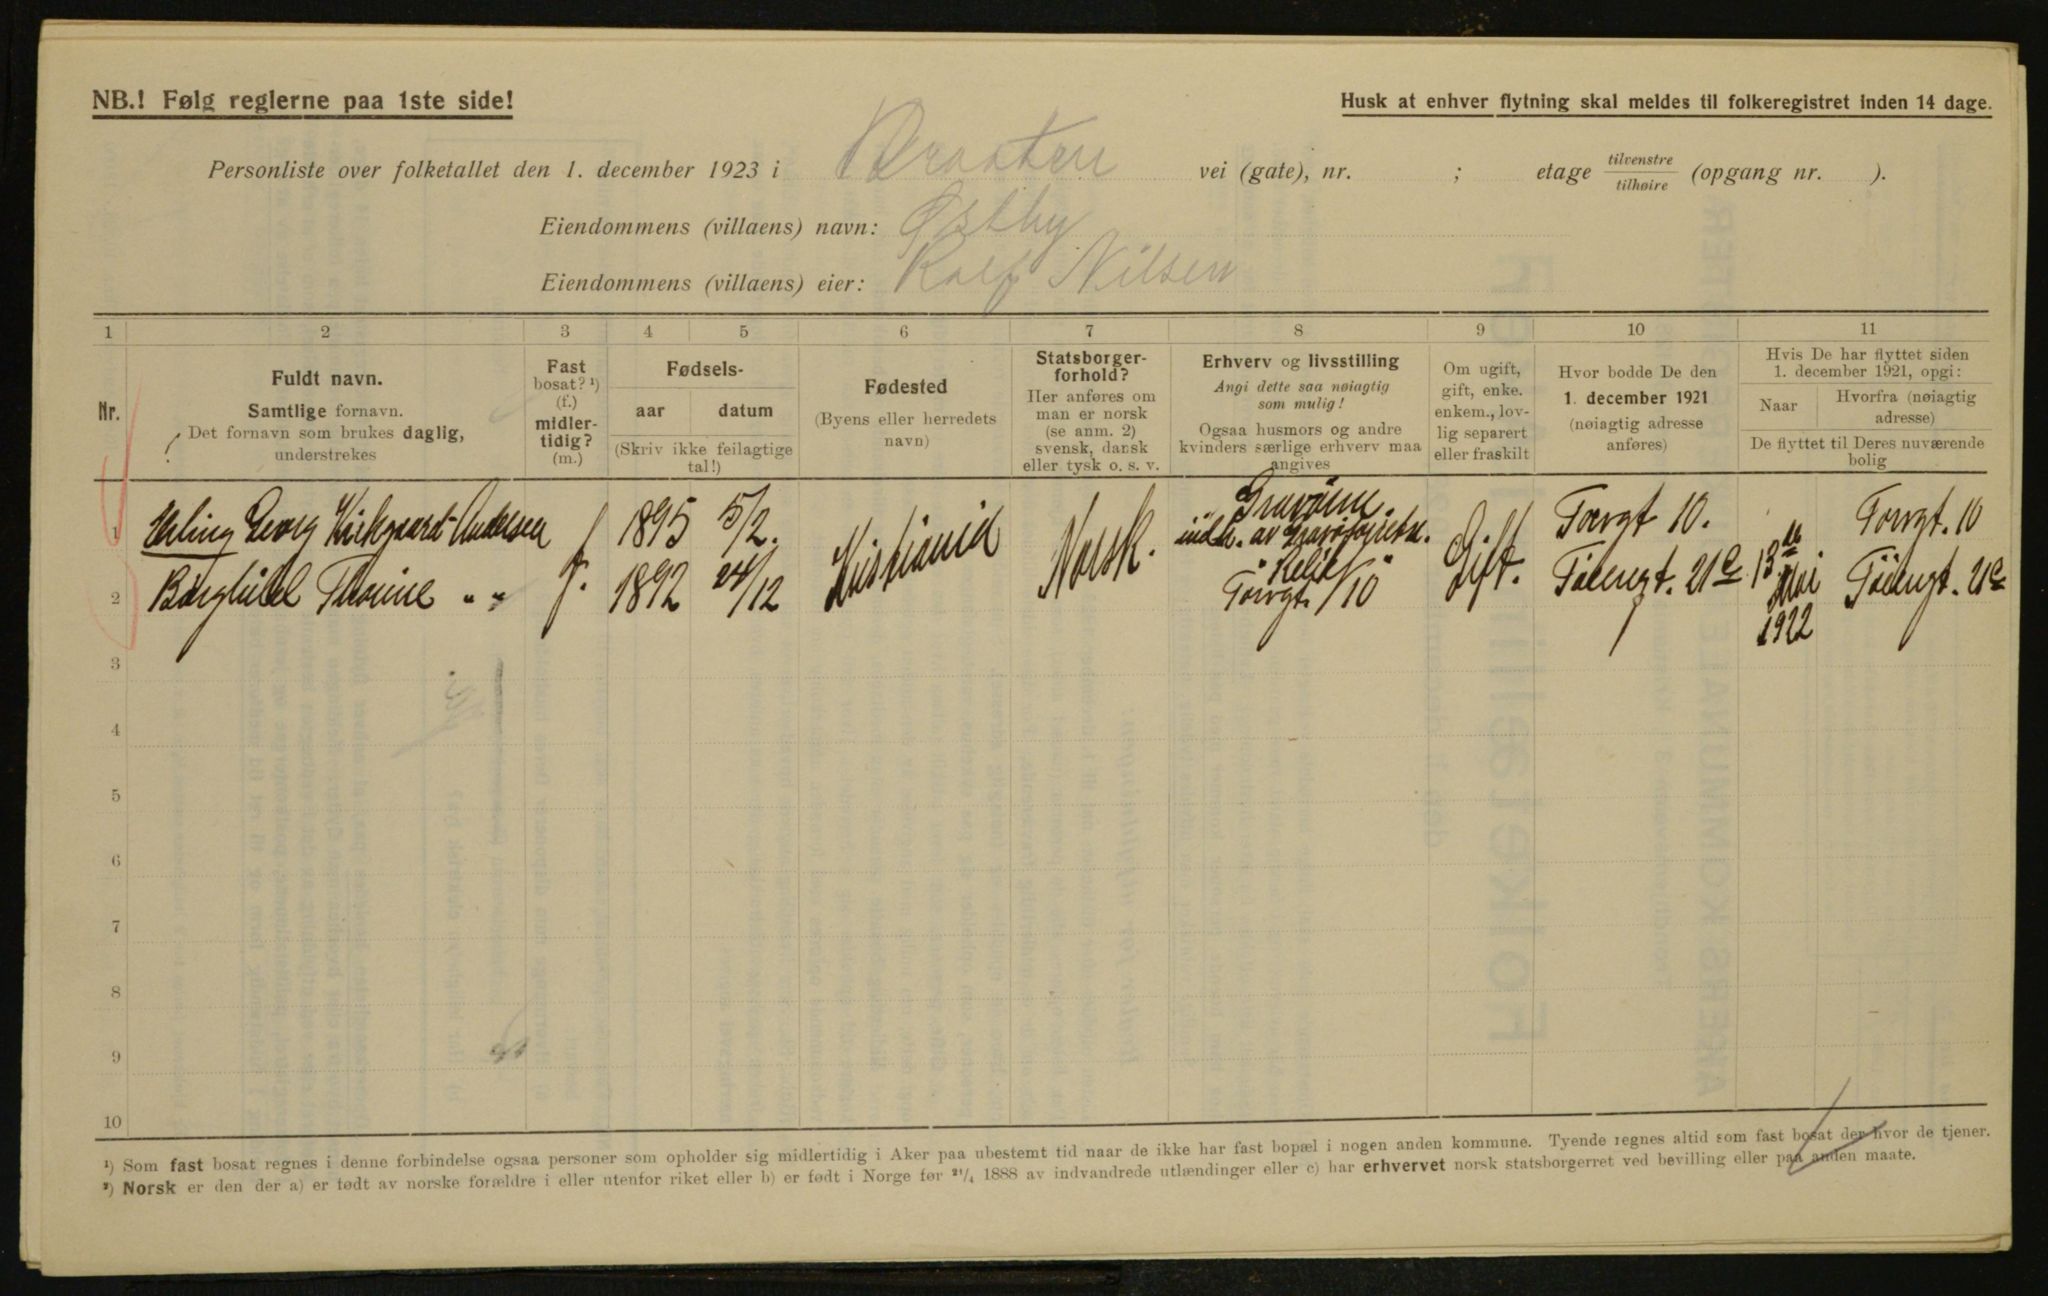 NB.! Følg reglerne paa 1ste side!
Husk at enhver flytning skal meldes til folkeregistret inden 14 dage.
Personliste over folketallet den 1. december 1923 i Braaten vei (gate), nr. ; etage tilvenstre/tilhøire (opgang nr. ).
Eiendommens (villaens) navn: Østby
Eiendommens (villaens) eier: Rolf Nilsen
1 2 3 4 5 6 7 8 9 10 11
Nr.
Fuldt navn.
Samtlige fornavn.
Det fornavn som brukes daglig,
understrekes
Fast
bosat? ¹)
(f.)
midler-
tidig?
(m.)
Fødsels-
aar datum
(Skriv ikke feilagtige
tal!)
Fødested
(Byens eller herredets
navn)
Statsborger-
forhold?
Her anføres om
man er norsk
(se anm. 2)
svensk, dansk
eller tysk o. s. v.
Erhverv og livsstilling
Angi dette saa nøiagtig
som mulig!
Ogsaa husmors og andre
kvinders særlige erhverv maa
angives
Om ugift,
gift, enke.
enkem., lov-
lig separert
eller fraskilt
Hvor bodde De den
1. december 1921
(nøiagtig adresse
anføres)
Hvis De har flyttet siden
1. december 1921, opgi:
Naar
Hvorfra (nøiagtig
adresse)
De flyttet til Deres nuværende
bolig
1 Erling Georg Kirkgaard-Andersen f. 1895 5/2. Kristiania Norsk. Gravør Gift. Torvgt 10. 13de Mai 1922 Torvgt. 10
indh. av
"Relief"
Torvgt. 10
2 Borghild Thorine " " 1892 24/12 Tøiengt. 21c Tøiengt. 21c
3
4
5
6
7
8
9
10
¹) Som fast bosat regnes i denne forbindelse ogsaa personer som opholder sig midlertidig i Aker paa ubestemt tid naar de ikke har fast bopæl i nogen anden kommune. Tyende regnes altid som fast bosat der hvor de tjener.
²) Norsk er den der a) er født av norske forældre i eller utenfor riket eller b) er født i Norge før 21/4 1888 av indvandrede utlændinger eller c) har erhvervet norsk statsborgerret ved bevilling eller paa anden maate.